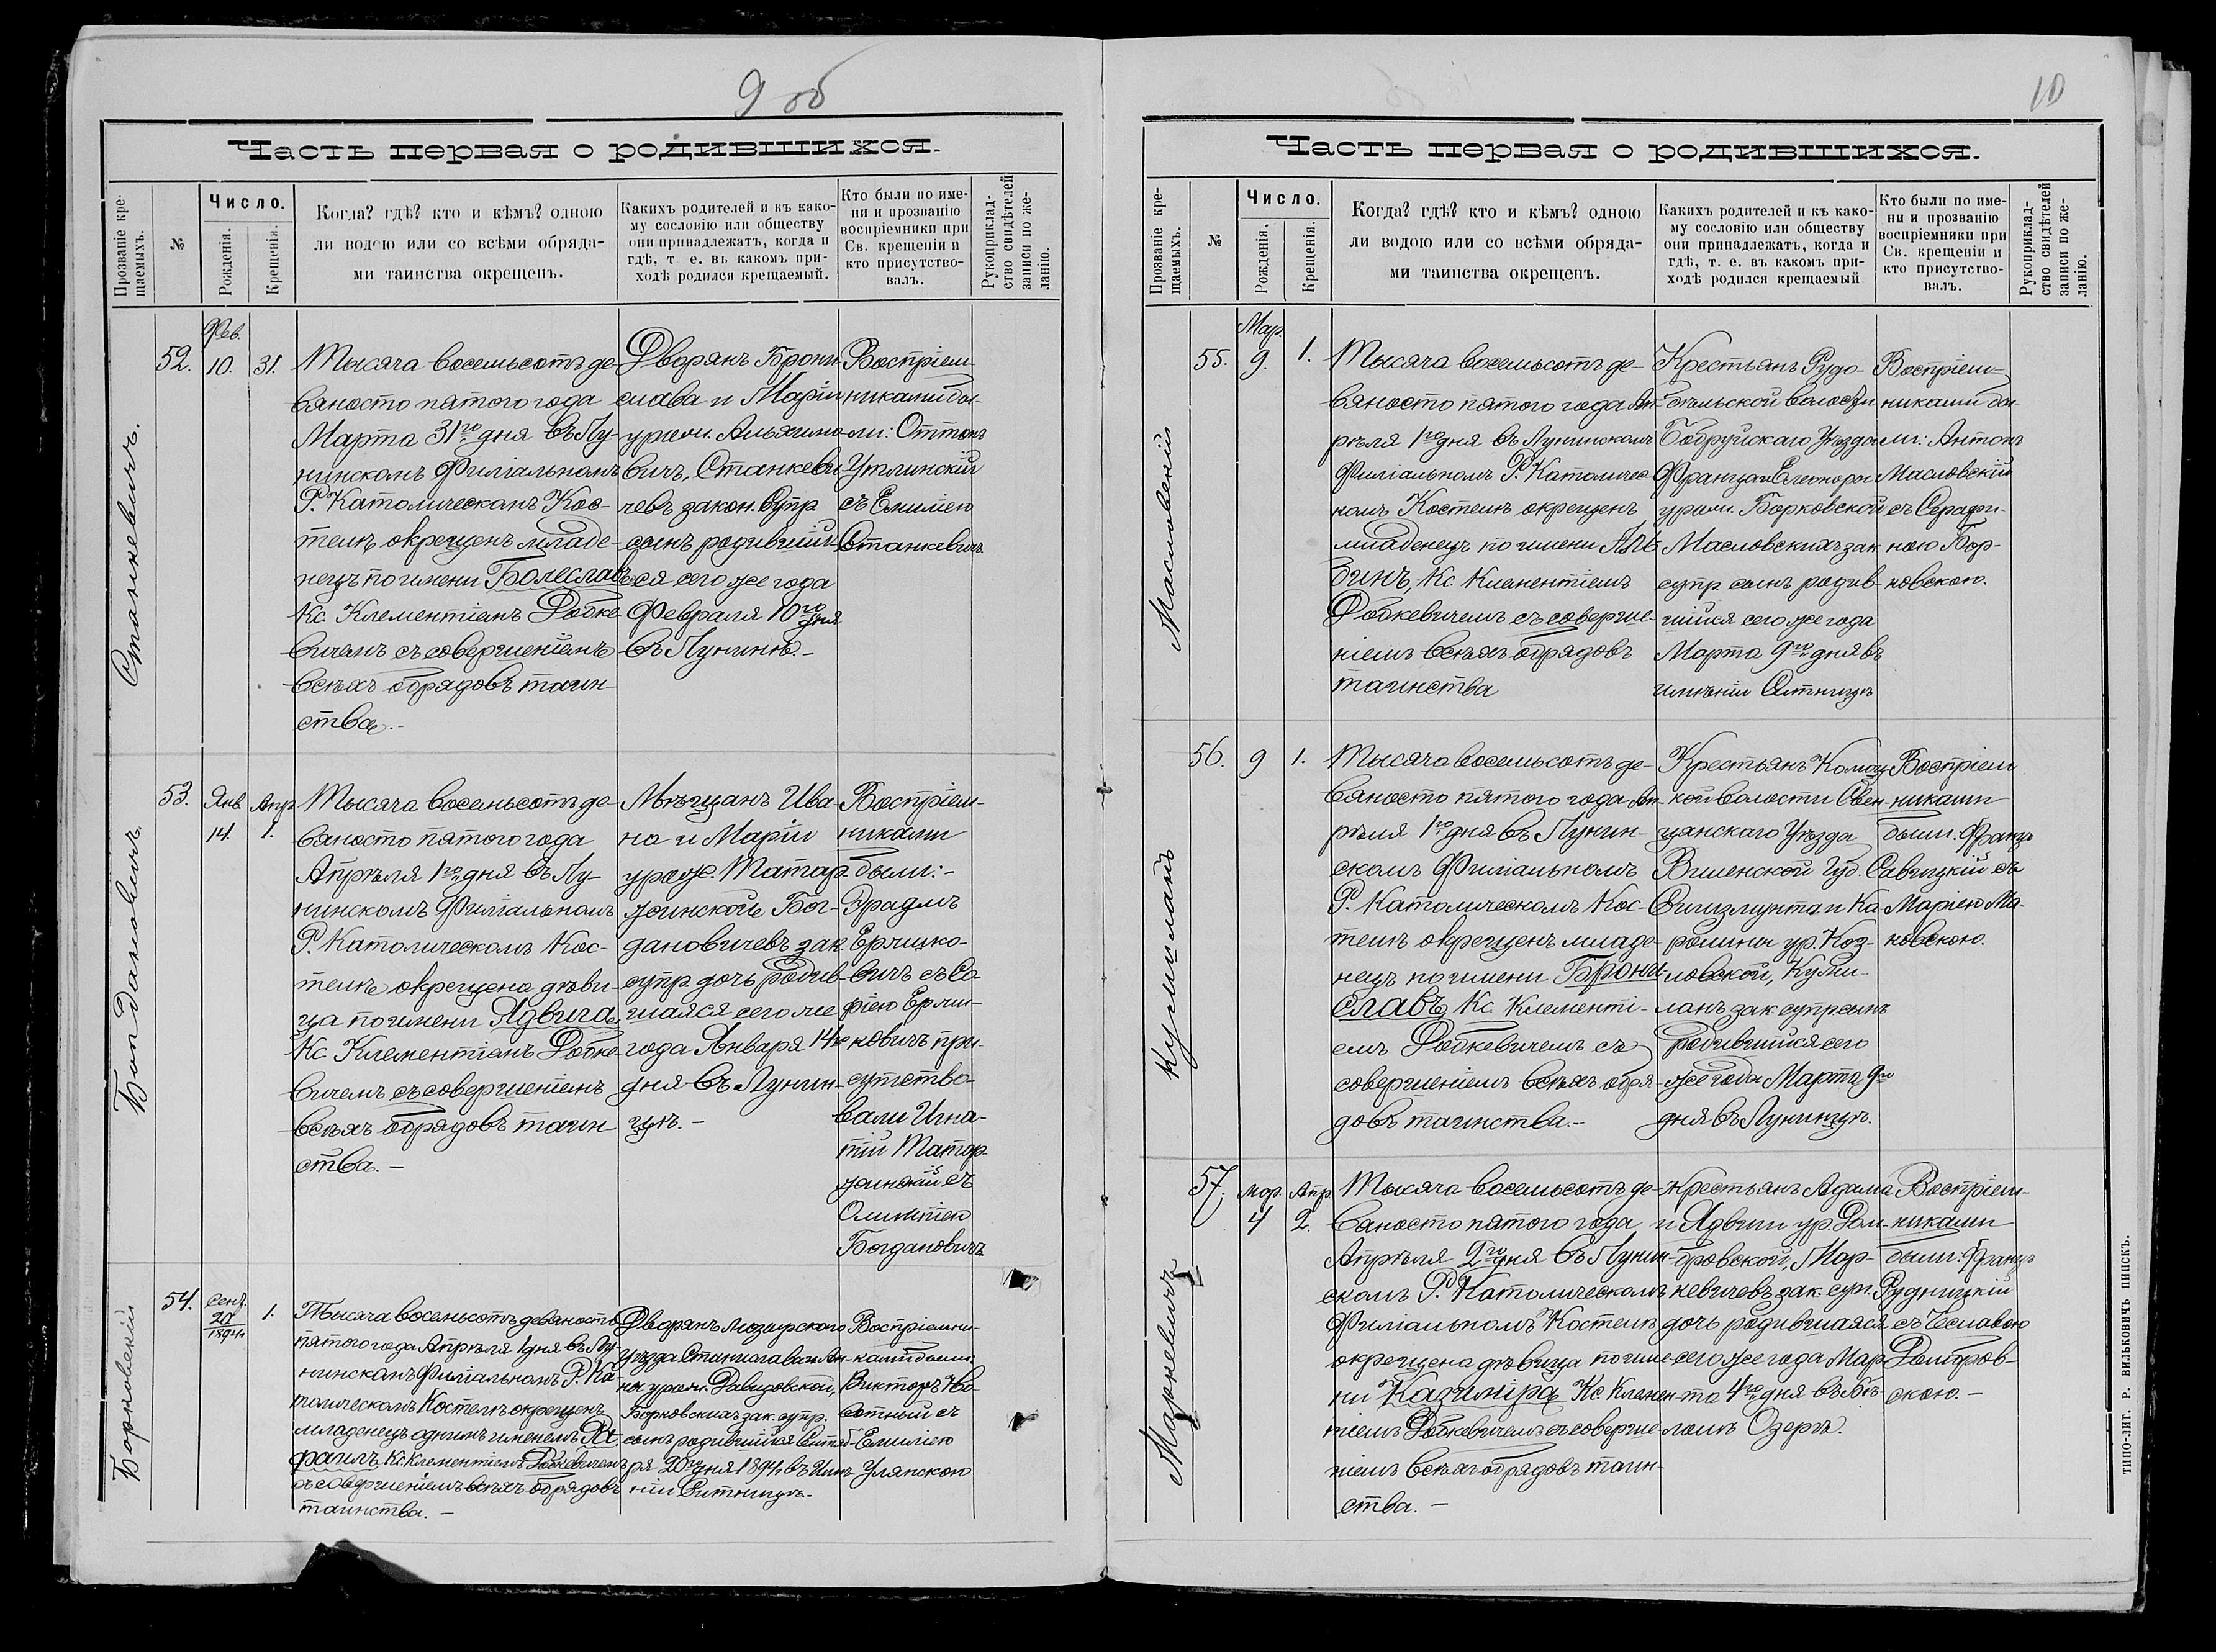 9 об
Часть первая о родившихся.
Прозваніе кре-
щаемыхъ.
№
Число.
Рожденія.
Крещенія.
Когда? гдѣ? кто и кѣмъ? одною
ли водою или со всѣми обряда-
ми таинства окрещенъ.
Какихъ родителей и къ како-
му сословію или обществу
они принадлежатъ, когда и
гдѣ, т. е. въ какомъ при-
ходѣ родился крещаемый.
Кто были по име-
ни и прозванію
воспріемники при
Св. крещеніи и
кто присутство-
валъ.
Рукоприклад-
ство свидѣтелей
записи по же-
ланію.
Станкевичъ.
52.
Фев.
10.
31.
Тысяча восемьсотъ де-
вяносто пятого года
Марта 31го дня въ Лу-
нинскомъ Филіальномъ
Р. Католическомъ Кос-
телѣ окрещенъ младе-
нецъ по имени Болеславъ
Кс. Клементіемъ Добке-
вичемъ съ совершеніемъ
всѣхъ обрядовъ таин-
ства.-
Дворянъ Брони-
слава и Маріи
урож. Альхимо-
вичъ, Станкеви-
чевъ закон. Супр
сынъ родившій-
ся сего же года
Февраля 10го дня
въ Лунинѣ.-
Воспріем-
никами бы-
ли: Оттонъ
съ Емиліею
Станкевичъ
Богдановичъ
53.
Янв
14.
Апр.
1.
Тысяча восемьсотъ де-
вяносто пятого года
Апрѣля 1го дня въ Лу-
нинскомъ Филіальномъ
Р. Католическомъ Кос-
телѣ окрещена дѣви-
ца по имени Ядвига,
Кс. Клементіемъ Добке-
вичемъ съ совершеніемъ
всѣхъ обрядовъ таин-
ства.-
Мѣщанъ Ива-
на и Маріи
урож. Татар-
жинской Бог-
дановичевъ зак.
супр. дочь родив-
шаяся сего же
года Января 14го
дня въ Лунин-
цѣ.-
Воспріем-
никами
были:-
вичъ съ Со-
фіею Ерми-
ковичъ при-
сутство-
вали Игна-
тій Татар-
жинскій съ
Олимпіею
Богдановичъ
Борковскій
54.
Сент.
20
1894
1.
Тысяча восемьсотъ девяносто
пятого года Апрѣля 1 дня въ Лу-
нинскомъ Филіальномъ Р. Ка-
толическомъ Костелѣ окрещенъ
младенецъ однимъ именемъ Ра-
фаилъ Кс. Клементіемъ Добкевичемъ
съ совершеніемъ всѣхъ обрядовъ
таинства.-
Дворянъ Мозырского
уѣзда Станислава и Ан-
ны урож. Давидовской,
Борковскихъ зак. супр.
сынъ родившійся Сентяб-
ря 20го дня 1894 въ Имѣ-
ніи Ситницѣ.-
Воспріемни-
ками были:
Викторъ
съ
Емиліею
Улянскою
10
Часть первая о родившихся.
Прозваніе кре-
щаемыхъ.
№
Число.
Рожденія.
Крещенія.
Когда? гдѣ? кто и кѣмъ? одною
ли водою или со всѣми обряда-
ми таинства окрещенъ.
Какихъ родителей и къ како-
му сословію или обществу
они принадлежатъ, когда и
гдѣ, т. е. въ какомъ при-
ходѣ родился крещаемый
Кто были по име-
ни и прозванію
воспріемники при
Св. крещеніи и
кто присутство-
валъ.
Рукоприклад-
ство свидѣтелей
записи по же-
ланію.
Масловскій
55.
Мар.
9.
1.
Тысяча восемьсотъ де-
вяносто пятого года Ап-
рѣля 1го дня въ Лунинскомъ
Филіальномъ Р. Католичес-
комъ Костелѣ окрещенъ
младенецъ по имени Аль-
бинъ, Кс. Клементіемъ
Добкевичемъ съ соверше-
ніемъ всѣхъ обрядовъ
таинства
Крестьянъ Рудо-
бѣльской волости
Бобруйскаго Уѣзда
Франца и Елеоноры
урож. Борковской
Масловскихъ зак.
супр. сынъ родив-
шійся сего же года
Марта 9го дня въ
имѣніи Ситницѣ
Воспріем-
никами бы-
ли: Антонъ
Масловскій
съ Серафи-
мою Бор-
ковскою.
Кумпланъ
56.
9
1.
Тысяча восемьсотъ де-
вяносто пятого года Ап-
рѣля 1го дня въ Лунин-
скомъ Филіальномъ
Р. Католическомъ Кос-
телѣ окрещенъ младе-
нецъ по имени Брони-
славъ, Кс. Клементі-
емъ Добкевичемъ съ
совершеніемъ всѣхъ обря-
довъ таинства.-
Крестьянъ
волости Свен-
цянскаго Уѣзда
Виленской Губ.
Сигизмунта и Ка-
ролины ур. Коз-
ловской,
зак. супр. сынъ
родившійся сего
же года Марта 9го
дня въ Лунинцѣ.
Воспріем-
никами
были: Францъ
Савицкій съ
Маріею Ма-
ковскою.
Маркевичъ
57.
Мар.
4
Апр
2.
Тысяча восемьсотъ де-
вяносто пятого года
Апрѣля 2го дня въ Лунин-
скомъ Р. Католическомъ
Филіальномъ Костелѣ
окрещена дѣвица по име-
ни Казиміра Кс. Клемен-
тіемъ Добкевичемъ съ соверше-
ніемъ всѣхъ обрядовъ таин-
ства.-
Крестьянъ Адама
и Ядвиги ур. Дом-
бровской, Мар-
кевичевъ зак. суп.
дочь родившаяся
сего же года Мар-
та 4го дня въ Бѣ-
ломъ Озерѣ.
Воспріем-
никами
были: Францъ
Рудницкій
съ Чеславою
Домбров-
скою.-
ТИПО-ЛИТ. Р. ВИЛЬКОВИЧЪ ПИНСКЪ.